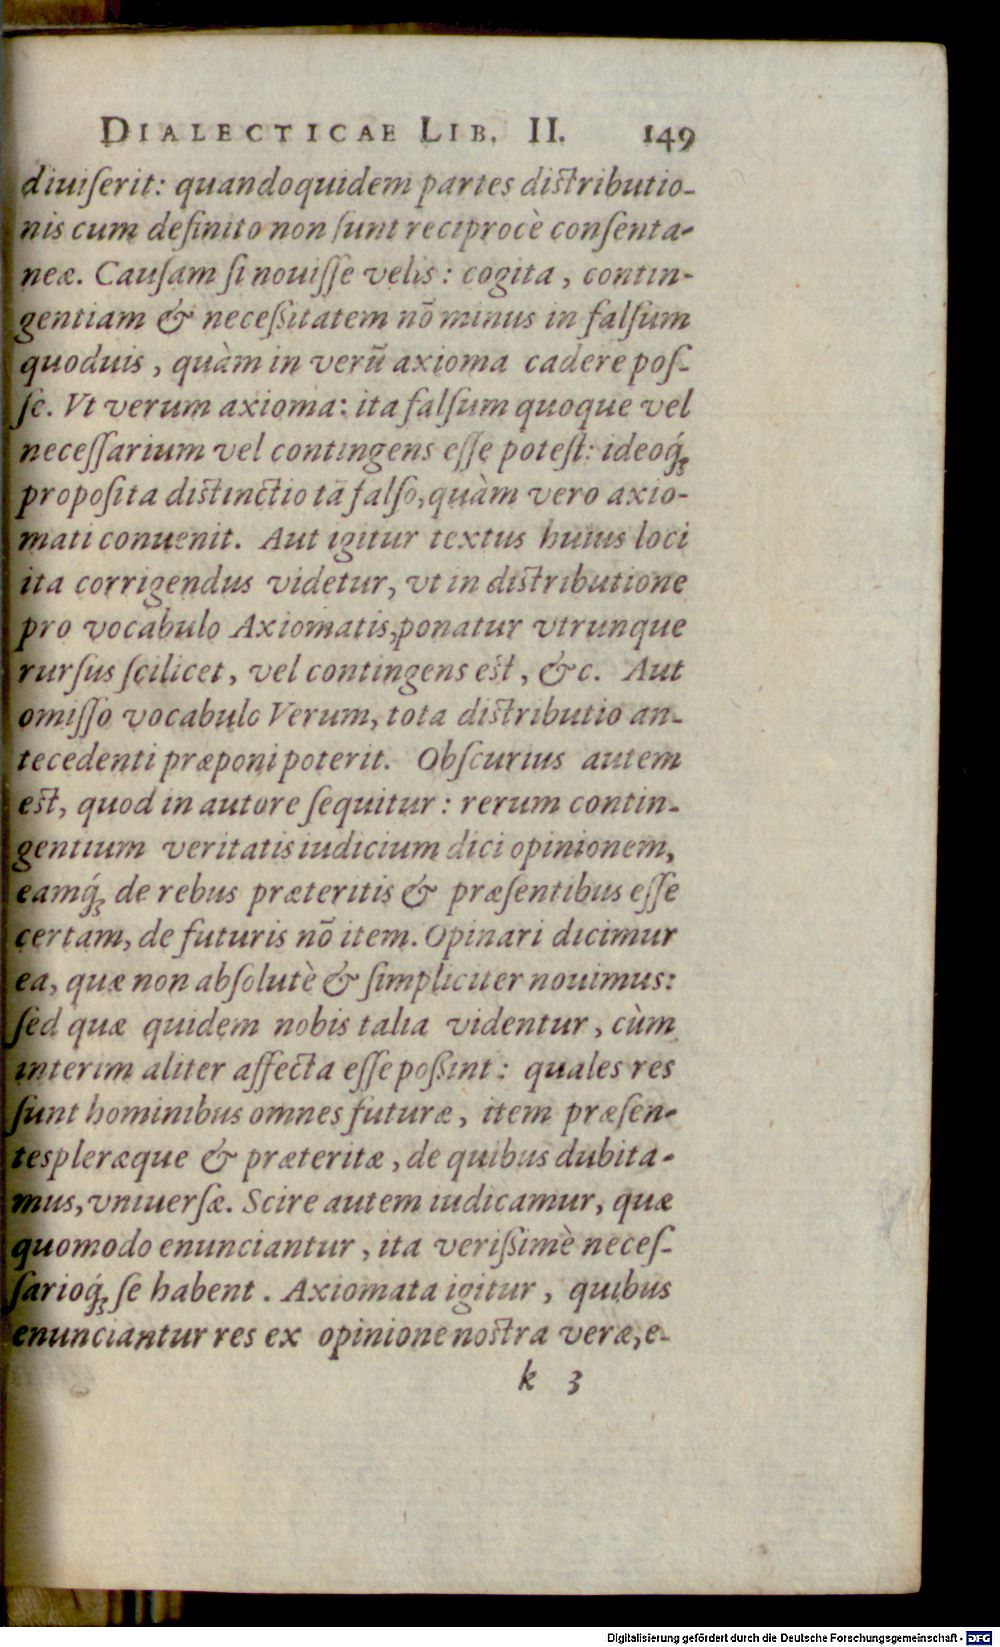 DIALECTICAE LIB. II. 149
diuiſerit: quandoquidem partes distributio-
nis cum definito non ſunt reciprocè conſenta-
neæ. Cauſam ſi nouiſſe velis: cogita, contin-
gentiam & neceſſitatem nō minus in falſum
quoduis, quàm in verū axioma cadere poſ-
ſe. Vt verum axioma: ita falſum quoque vel
neceſſarium vel contingens eſſe poteſt: ideoq́;
propoſita distinctio tā falſo, quàm vero axio-
mati conuenit. Aut igitur textus huius loci
ita corrigendus videtur, vt in distributione
pro vocabulo Axiomatis, ponatur vtrunque
rurſus ſcilicet, vel contingens est, &c. Aut
omiſſo vocabulo Verum, tota distributio an-
tecedenti præponi poterit. Obſcurius autem
est, quod in autore ſequitur: rerum contin-
gentium veritatis iudicium dici opinionem,
eamq́; de rebus præteritis & præſentibus eſſe
certam, de futuris nō item. Opinari dicimur
ea, quæ non abſolutè & ſimpliciter nouimus:
ſed quæ quidem nobis talia videntur, cùm
interim aliter affecta eſſe poſſint: quales res
ſunt hominibus omnes futuræ, item præſen-
tes pleræque & præteritæ, de quibus dubita-
mus, vniuerſæ. Scire autem iudicamur, quæ
quomodo enunciantur, ita veriſſimè neceſ-
ſarioq́; ſe habent. Axiomata igitur, quibus
enunciantur res ex opinione nostra veræ, e-
k 3
Digitalisierung gefördert durch die Deutsche Forschungsgemeinschaft - DFG